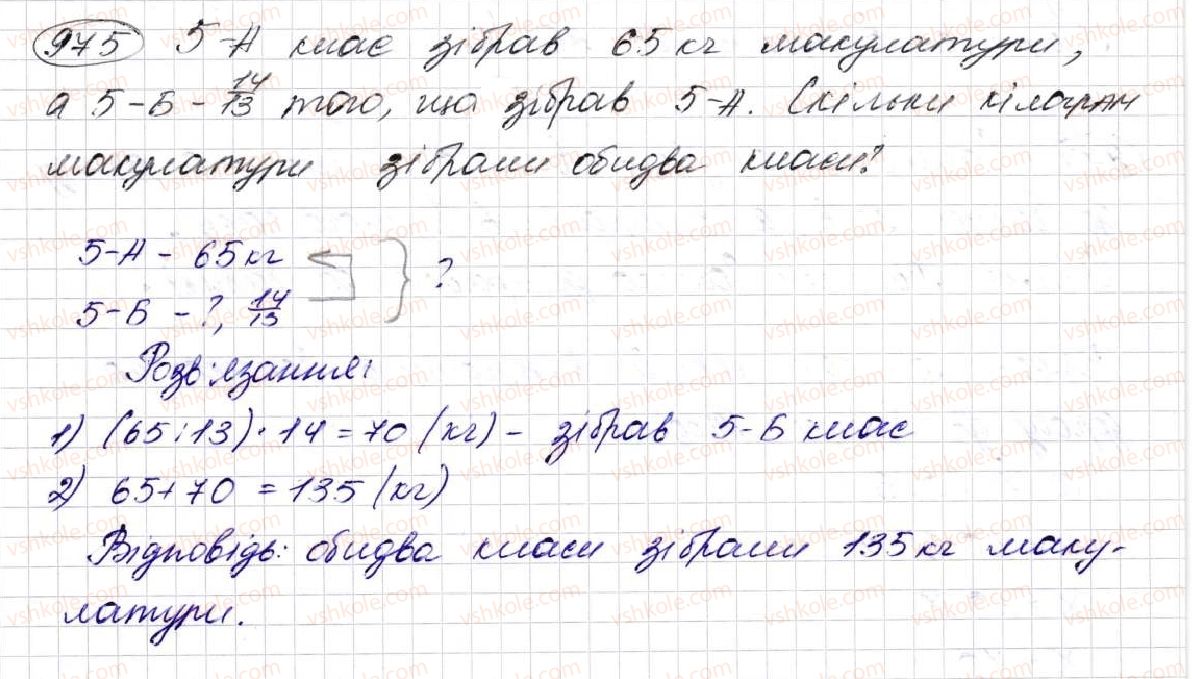 975 5-А клас зібрав 65 кг макулатури,
а 5-Б - 14/13 того, що зібрав 5-А. Скільки кілограм
макулатури зібрали обидва класи?
5-А - 65 кг
5-Б - ?, 14/13
?
Розв'язання:
1) (65:13)·14 = 70 (кг) - зібрав 5-Б клас
2) 65+70 = 135 (кг)
Відповідь: обидва класи зібрали 135 кг маку-
латури.